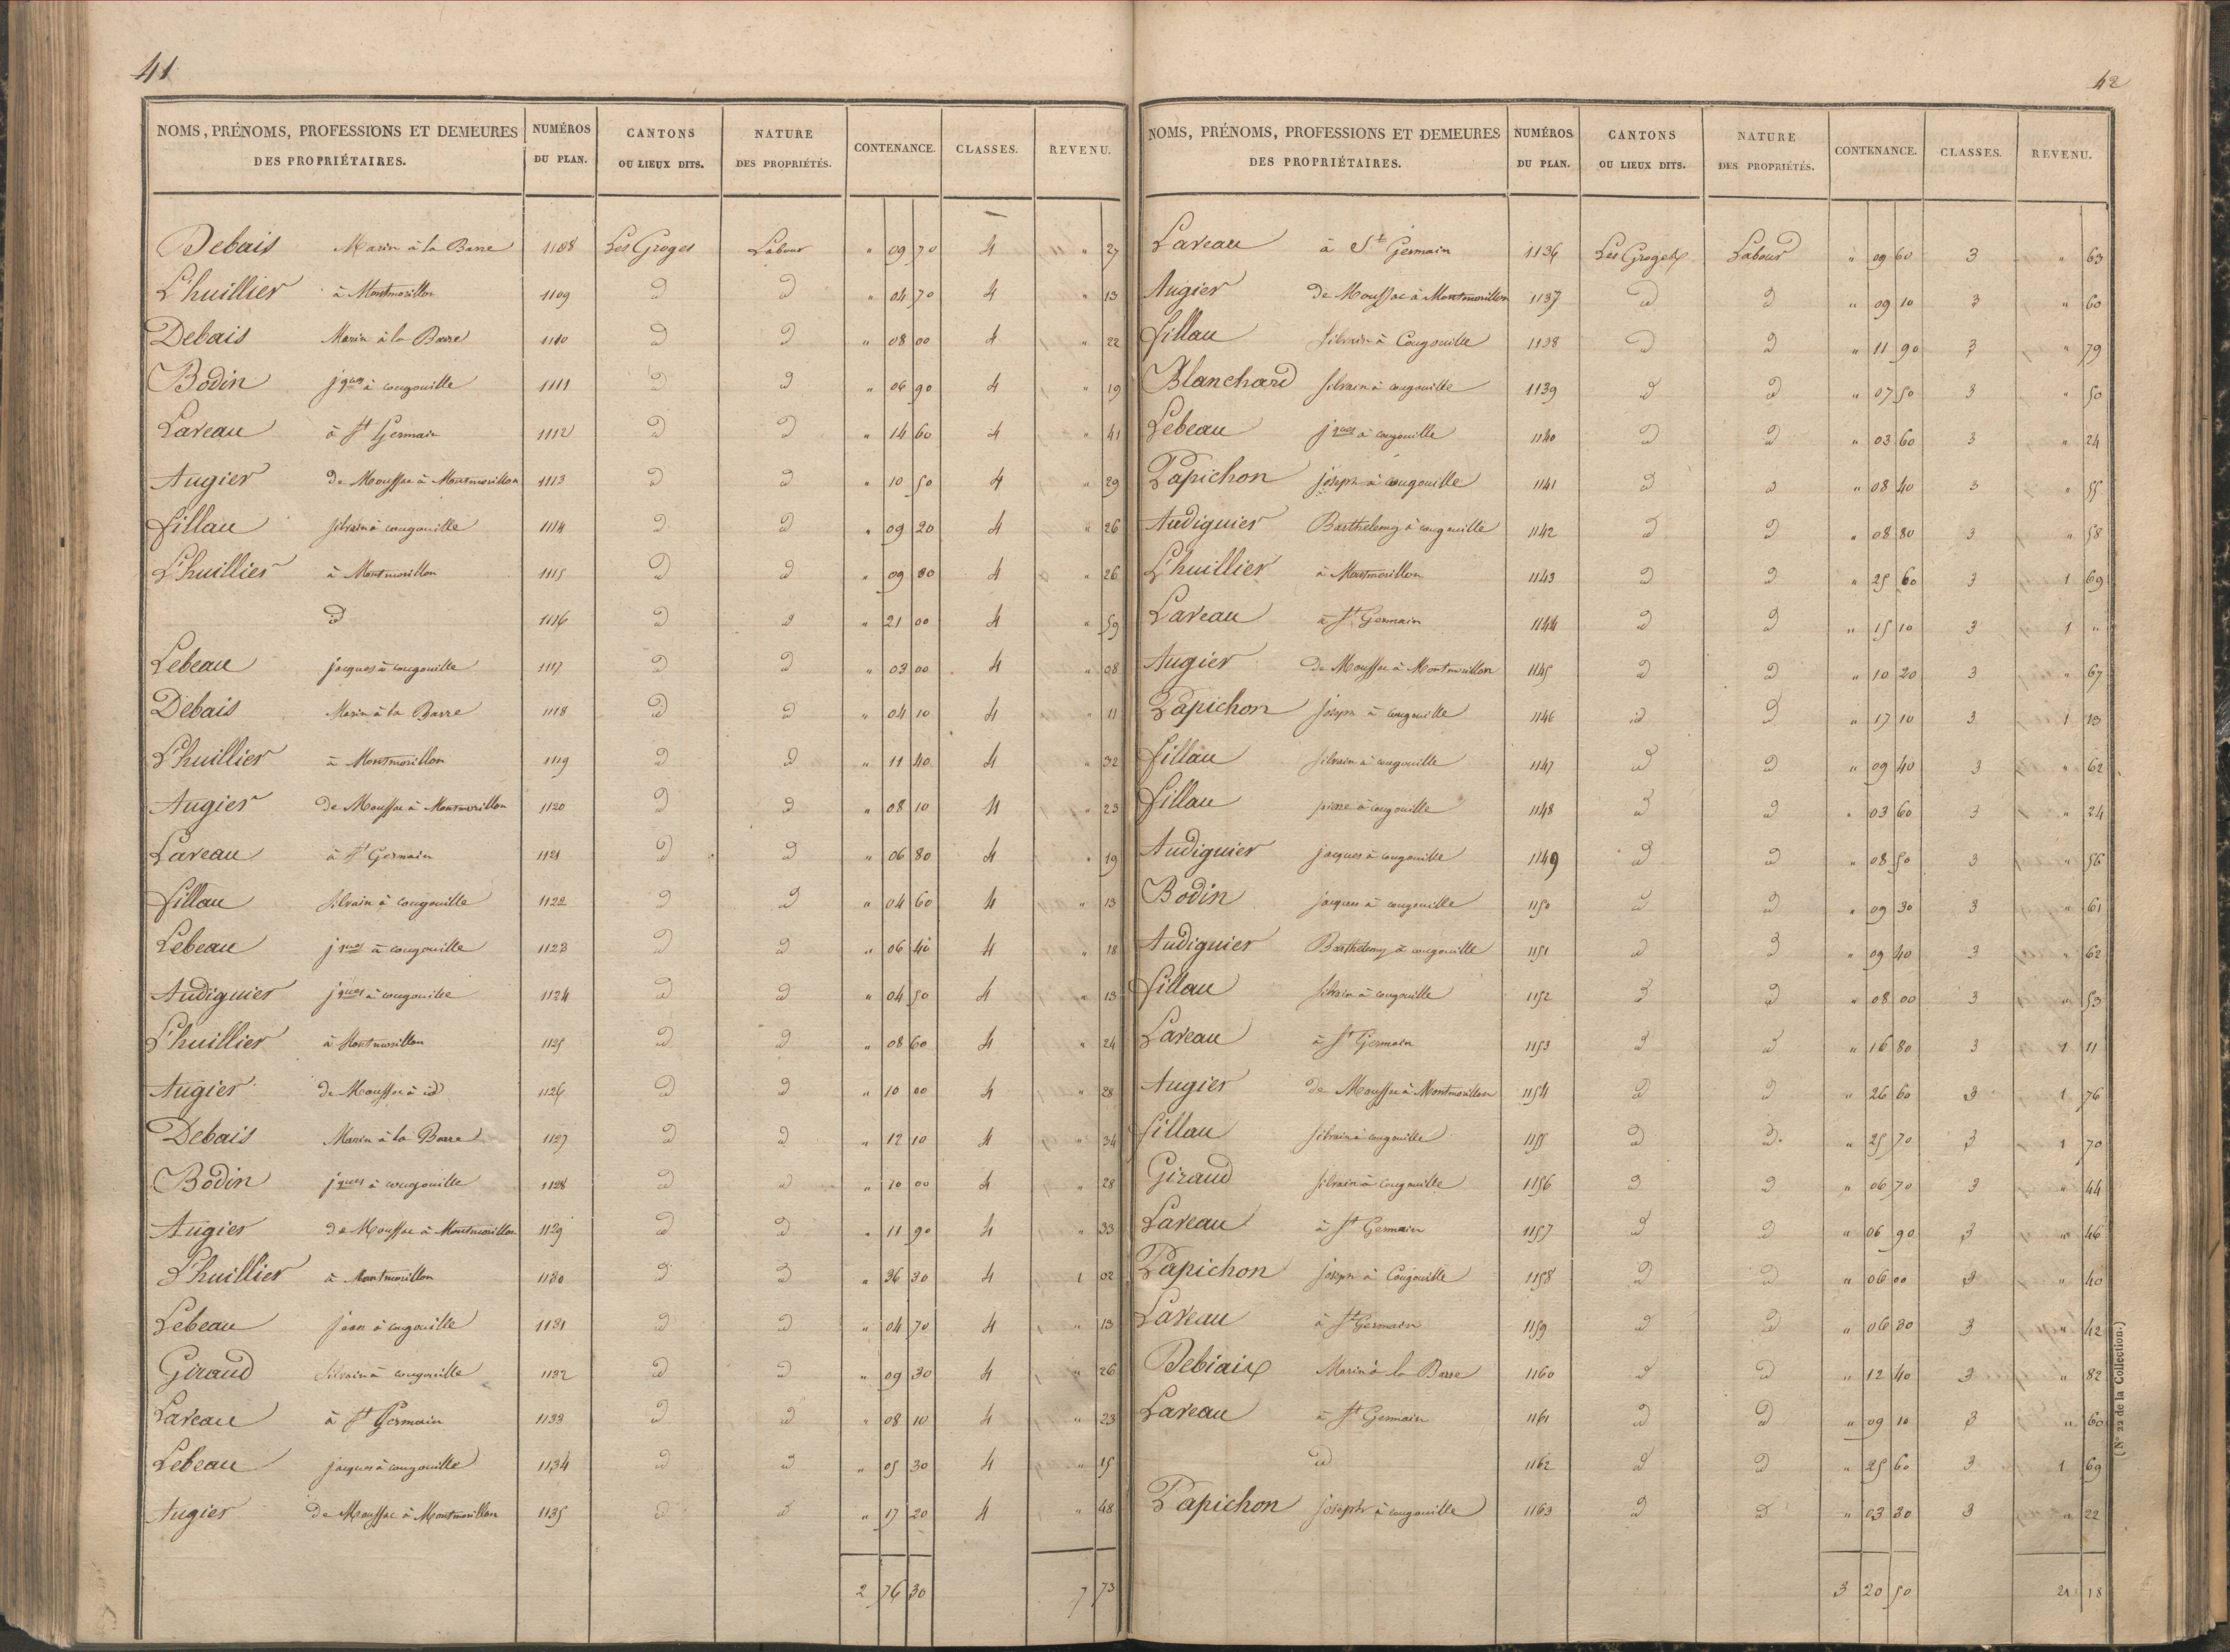 41
NOMS, PRÉNOMS, PROFESSIONS ET DEMEURES DES PROPRIÉTAIRES. NUMÉROS DU PLAN. CANTONS OU LIEUX DITS. NATURE DES PROPRIÉTÉS. CONTENANCE. CLASSES. REVENU.
Debais Marin à la Barre 1108 Les Groges Labour " 09 70 4 " 27
L'huillier à Montmorillon 1109 d d " 04 70 4 " 13
Debais Marin à la Barre 1110 d d " 08 00 4 " 22
Bodin jques à cougouille 1111 d d " 06 90 4 " 19
Laveau à St Germain 1112 d d " 14 60 4 " 41
Augier de Moussac à Montmorillon 1113 d d " 10 50 4 " 29
fillau silvain à cougouille 1114 d d " 09 20 4 " 26
L'huillier à Montmorillon 1115 d d " 09 30 4 " 26
d 1116 d d " 21 00 4 " 59
Lebeau jacques à cougouille 1117 d d " 03 00 4 " 08
Debais Marin à la Barre 1118 d d " 04 10 4 " 11
L'huillier à Montmorillon 1119 d d " 11 40 4 " 32
Augier de Moussac à Montmorillon 1120 d d " 08 10 4 " 23
Laveau à St Germain 1121 d d " 06 80 4 " 19
fillau silvain à cougouille 1122 d d " 04 60 4 " 13
Lebeau jques à cougouille 1123 d d " 06 40 4 " 18
Audiguier jques à cougouille 1124 d d " 04 50 4 " 13
L'huillier à Montmorillon 1125 d d " 08 60 4 " 24
Augier de Moussac à id 1126 d d " 10 00 4 " 28
Debais Marin à la Barre 1127 d d " 12 10 4 " 34
Bodin jques à cougouille 1128 d d " 10 00 4 " 28
Augier de Moussac à Montmorillon 1129 d d " 11 90 4 " 33
L'huillier à Montmorillon 1130 d d " 36 30 4 1 02
Lebeau jean à cougouille 1131 d d " 04 70 4 " 13
Giraud silvain à cougouille 1132 d d " 09 30 4 " 26
Laveau à St Germain 1133 d d " 08 10 4 " 23
Lebeau jacques à cougouille 1134 d d " 05 30 4 " 15
Augier de Moussac à Montmorillon 1135 d d " 17 20 4 " 48
2 76 30 7 73
42
NOMS, PRÉNOMS, PROFESSIONS ET DEMEURES DES PROPRIÉTAIRES. NUMÉROS DU PLAN. CANTONS OU LIEUX DITS. NATURE DES PROPRIÉTÉS. CONTENANCE. CLASSES. REVENU.
Laveau à St Germain 1136 Les Groges Labour " 09 60 3 " 63
Augier de Moussac à Montmorillon 1137 d d " 09 10 3 " 60
fillau silvain à Cougouille 1138 d d " 11 90 3 " 79
Blanchard silvain à cougouille 1139 d d " 07 50 3 " 50
Lebeau jques à cougouille 1140 d d " 03 60 3 " 24
Papichon joseph à cougouille 1141 d d " 08 40 3 " 55
Audiguier Barthelemy à cougouille 1142 d d " 08 80 3 " 58
L'huillier à Montmorillon 1143 d d " 25 60 3 1 69
Laveau à St Germain 1144 d d " 15 10 3 1 "
Augier de Moussac à Montmorillon 1145 d d " 10 20 3 " 67
Papichon joseph à cougouille 1146 d d " 17 10 3 1 13
fillau silvain à cougouille 1147 d d " 09 40 3 " 62
fillau pierre à cougouille 1148 d d " 03 60 3 " 24
Audiguier jacques à cougouille 1149 d d " 08 50 3 " 56
Bodin jacques à cougouille 1150 d d " 09 30 3 " 61
Audiguier Barthelemy à cougouille 1151 d d " 09 40 3 " 62
fillau silvain à cougouille 1152 d d " 08 00 3 " 53
Laveau à St Germain 1153 d d " 16 80 3 1 11
Augier de Moussac à Montmorillon 1154 d d " 26 60 3 1 76
fillau silvain à cougouille 1155 d d " 25 70 3 1 70
Giraud silvain à cougouille 1156 d d " 06 70 3 " 44
Laveau à St Germain 1157 d d " 06 90 3 " 46
Papichon joseph à Cougouille 1158 d d " 06 00 3 " 40
Laveau à St Germain 1159 d d " 06 30 3 " 42
Debiaix Marin à la Barre 1160 d d " 12 40 3 " 82
Laveau à St Germain 1161 d d " 09 10 3 " 60
d 1162 d d " 25 60 3 1 69
Papichon joseph à cougouille 1163 d d " 03 30 3 " 22
3 20 50 21 18
(N° 22 de la Collection.)